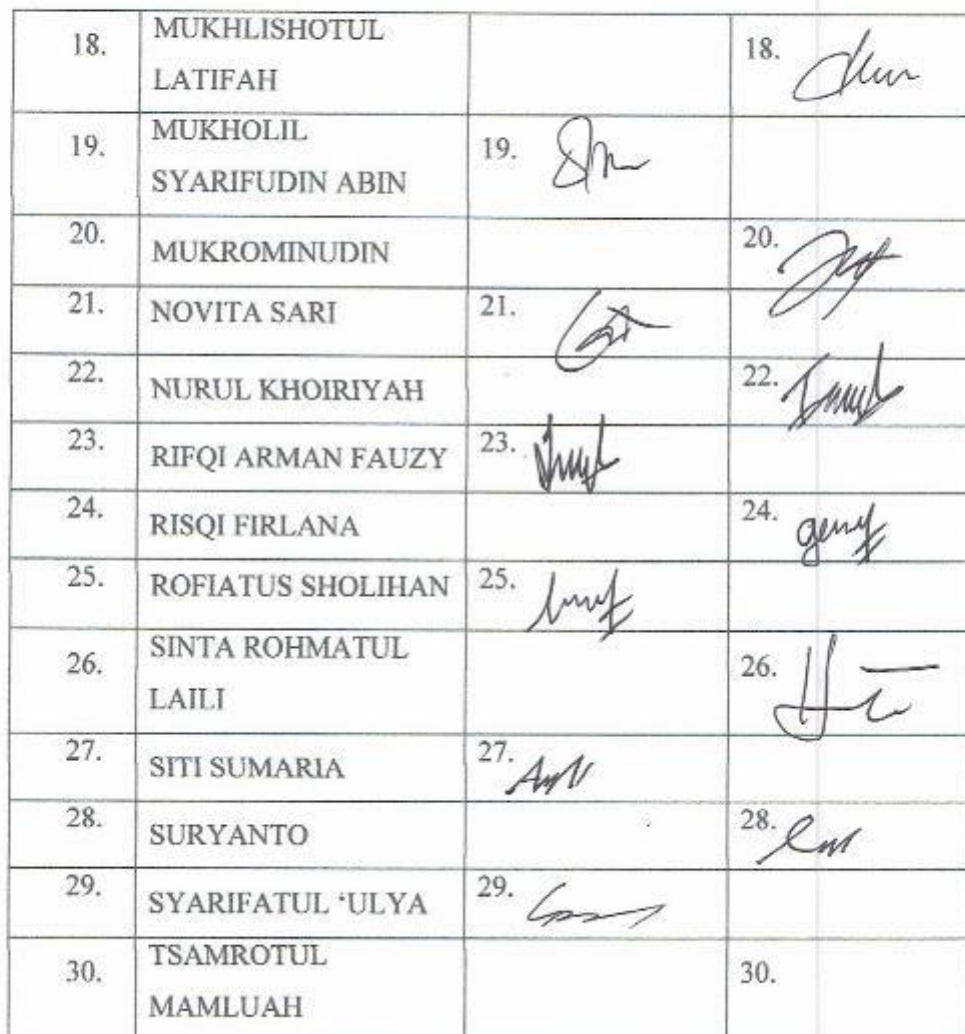 18. MUKHLISHOTUL 18.
LATIFAH
19. MUKHOLIL 19.
SYARIFUDIN ABIN
20. MUKROMINUDIN 20.
21. NOVITA SARI 21.
22. NURUL KHOIRIYAH 22.
23. RIFQI ARMAN FAUZY 23.
24. RISQI FIRLANA 24.
25. ROFIATUS SHOLIHAN 25.
26. SINTA ROHMATUL 26.
LAILI
27. SITI SUMARIA 27.
28. SURYANTO 28.
29. SYARIFATUL ‘ULYA 29.
30. TSAMROTUL 30.
MAMLUAH